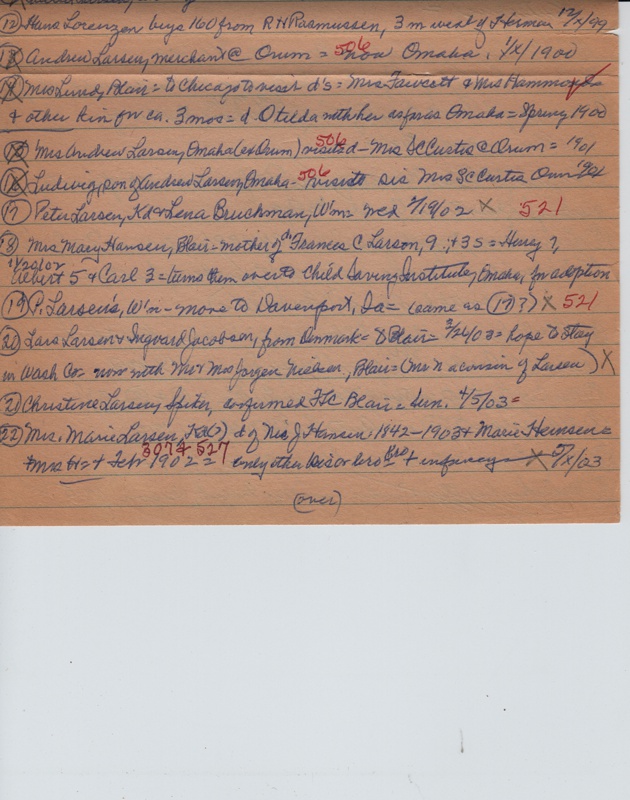 (12) Hans Lorenzen buys 160 from R H Rasmussen, 3 m west of Herman 12/x/99
(13) Andrew Larsen, merchant @ Orum = 506 now Omaha. 1/x/1900
(14) Mrs Lund, Blair = to Chicago to visit d's = Mrs Fawcett & Mrs Hammond
& other kin for ca. 3 mos = d Otilda with her as far as Omaha = Spring 1900
(15) Mrs Andrew Larsen, Omaha (ex Orum) 506 visits d - Mrs SC Curtis @ Orum = 1901
(16) Ludwig, son of Andrew Larsen, Omaha - 506 visits sis Mrs SC Curtis Orum
(17) Peter Larsen, Kd & Lena Bruchman, W'm = wed 2/19/02 X 521
(18) Mrs Mary Hansen, Blair = mother of Frances C Larson, 9 & 3 s = Henry 7,
11/20/02
Albert 5 & Carl 3 = turns them over to Child Saving Institute, Omaha, for adoption
(19) P. Larsen's, W'n - move to Davenport, Ia = (same as (17)?) X 521
(20) Lars Larsen & Ingvard Jacobsen, from Denmark = to Blair = 3/26/03 = hope to stay
in Wash Co = now with Mr & Mrs Jorgen Nielsen, Blair = (Mr N a cousin of Larsen) X
(21) Christine Larsen, Spiker, confirmed FLC Blair = 4/5/03 =
(22) Mrs. Marie Larsen, Kd(?) d of Nis J Hansen: 1842-1903 & Marie Heinsen =
307 & 527
Mrs H = + Feb 1902 = only other sis or bro + infancy X 5/x/03
(over)